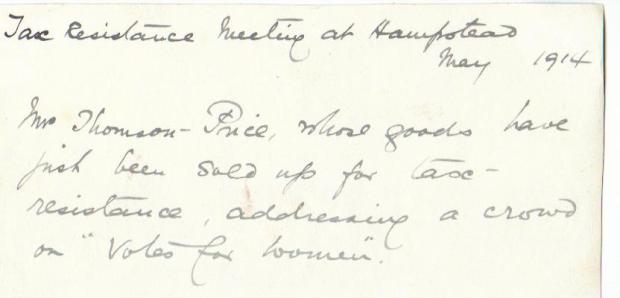 Tax Resistance Meeting at Hampstead
May 1914
Mrs Thomson-Price, whose goods have
just been sold up for tax-
resistance, addressing a crowd
on "Votes for Women".